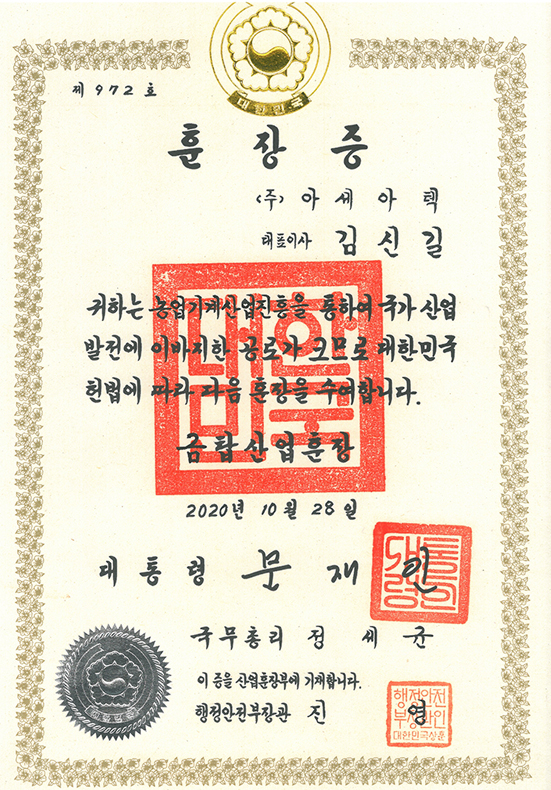 대한민국
제 972 호
훈 장 증
(주) 아 세 아 텍
대표이사 김 신 길
귀하는 농업기계산업진흥을 통하여 국가 산업
발전에 이바지한 공로가 크므로 대한민국
헌법에 따라 다음 훈장을 수여합니다.
대한민국
금탑산업훈장
2020년 10월 28일
대 통 령 문 재 인
대통령의인
국무총리 정 세 균
이 증을 산업훈장부에 기재합니다.
행정안전부장관 진 영
행정안전
부장관인
대한민국상훈
대한민국